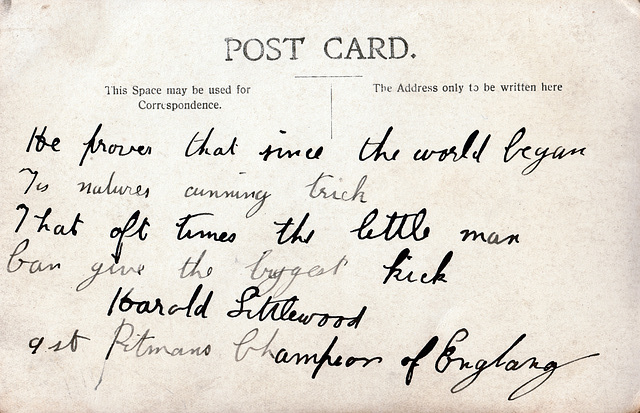 POST CARD.
This Space may be used for
Correspondence.
The Address only to be written here
He proves that since the world began
Tis natures cunning trick
That oft times the little man
Can give the biggest kick
Harold Littlewood
9st Pitmans Champion of England